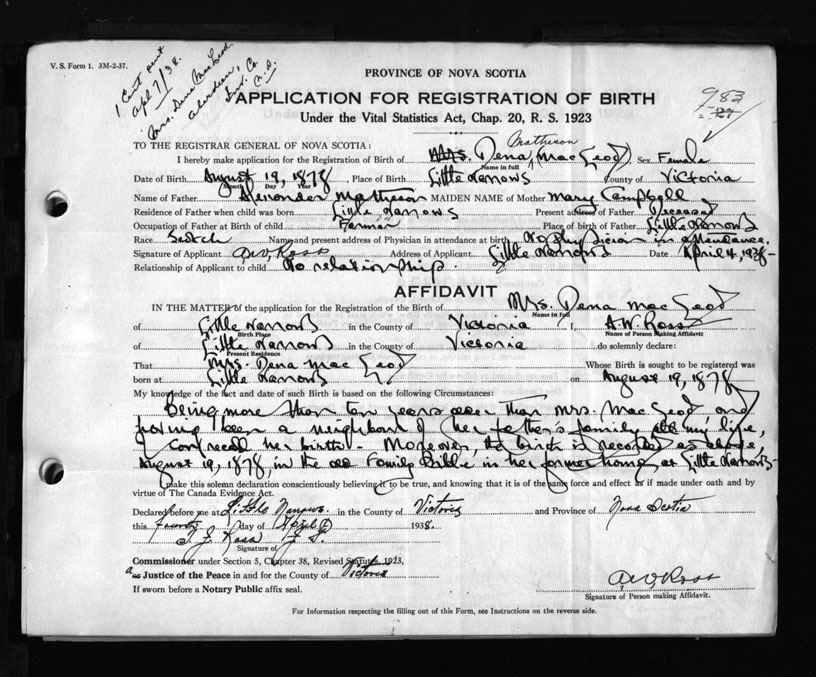 V. S. Form 1. 3M-2-37.
1 Cert sent
Apl 7/38.
Mrs. Dena MacLeod
Aberdeen,
Inv. Co.
N.S.
983
27
PROVINCE OF NOVA SCOTIA
APPLICATION FOR REGISTRATION OF BIRTH
Under the Vital Statistics Act, Chap. 20, R. S. 1923
TO THE REGISTRAR GENERAL OF NOVA SCOTIA:
Matheson
I hereby make application for the Registration of Birth of Mrs. Dena (MacLeod) Sex Female
Name in full
Date of Birth August 19, 1878, Place of Birth Little Narrows County of Victoria
Month Day Year
Name of Father Alexander Matheson MAIDEN NAME of Mother Mary Campbell
Residence of Father when child was born Little Narrows Present address of Father Deceased
Occupation of Father at Birth of Child Farmer Place of birth of Father Little Narrows
Race Scotch Name and present address of Physician in attendance at birth No physician in attendance.
Signature of Applicant A W Ross Address of Applicant Little Narrows Date April 4, 1938-
Relationship of Applicant to child No relationship.
AFFIDAVIT
IN THE MATTER of the application for the Registration of the Birth of Mrs. Dena MacLeod
Name in full
of Little Narrows in the County of Victoria I, A. W. Ross
Birth Place Name of Person Making Affidavit
of Little Narrows in the County of Victoria do solemnly declare:
Present Residence
That Mrs. Dena MacLeod Whose Birth is sought to be registered was
born at Little Narrows on August 19, 1878
My knowledge of the fact and date of such Birth is based on the following Circumstances:
Being more than ten years older than Mrs. MacLeod and
having been a neighbour of her father's family all my life,
I can recall her birth. Moreover, the birth is recorded as above,
August 19, 1878, in the old Family Bible in her former home at Little Narrows-
make this solemn declaration conscientiously believing it to be true, and knowing that it is of the same force and effect as if made under oath and by
virtue of The Canada Evidence Act.
Declared before me at Little Narrows in the County of Victoria and Province of Nova Scotia
this fourth day of April 1938.
Ross J. P.
Signature of
Commissioner under Section 5, Chapter 38, Revised Statutes, 1923,
a Justice of the Peace in and for the County of Victoria
If sworn before a Notary Public affix seal.
A W Ross
Signature of Person making Affidavit.
For Information respecting the filling out of this Form, see Instructions on the reverse side.